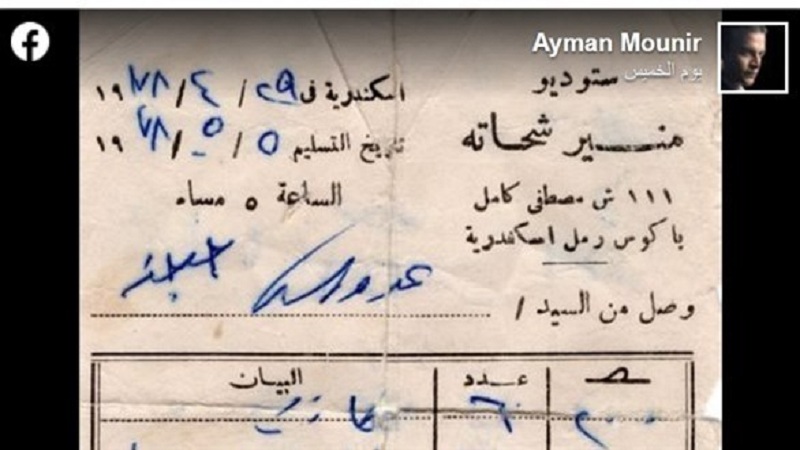 Ayman Mounir
يوم الخميس
ستوديو
منير شحاته
١١١ ش مصطفى كامل
باكوس رمل اسكندرية
اسكندرية فى ٢٩ / ٤ / ١٩٧٨
تاريخ التسليم ٥ / ٥ / ١٩٧٨
الساعة ٥ مساء
وصل من السيد /
البيان عدد
٦